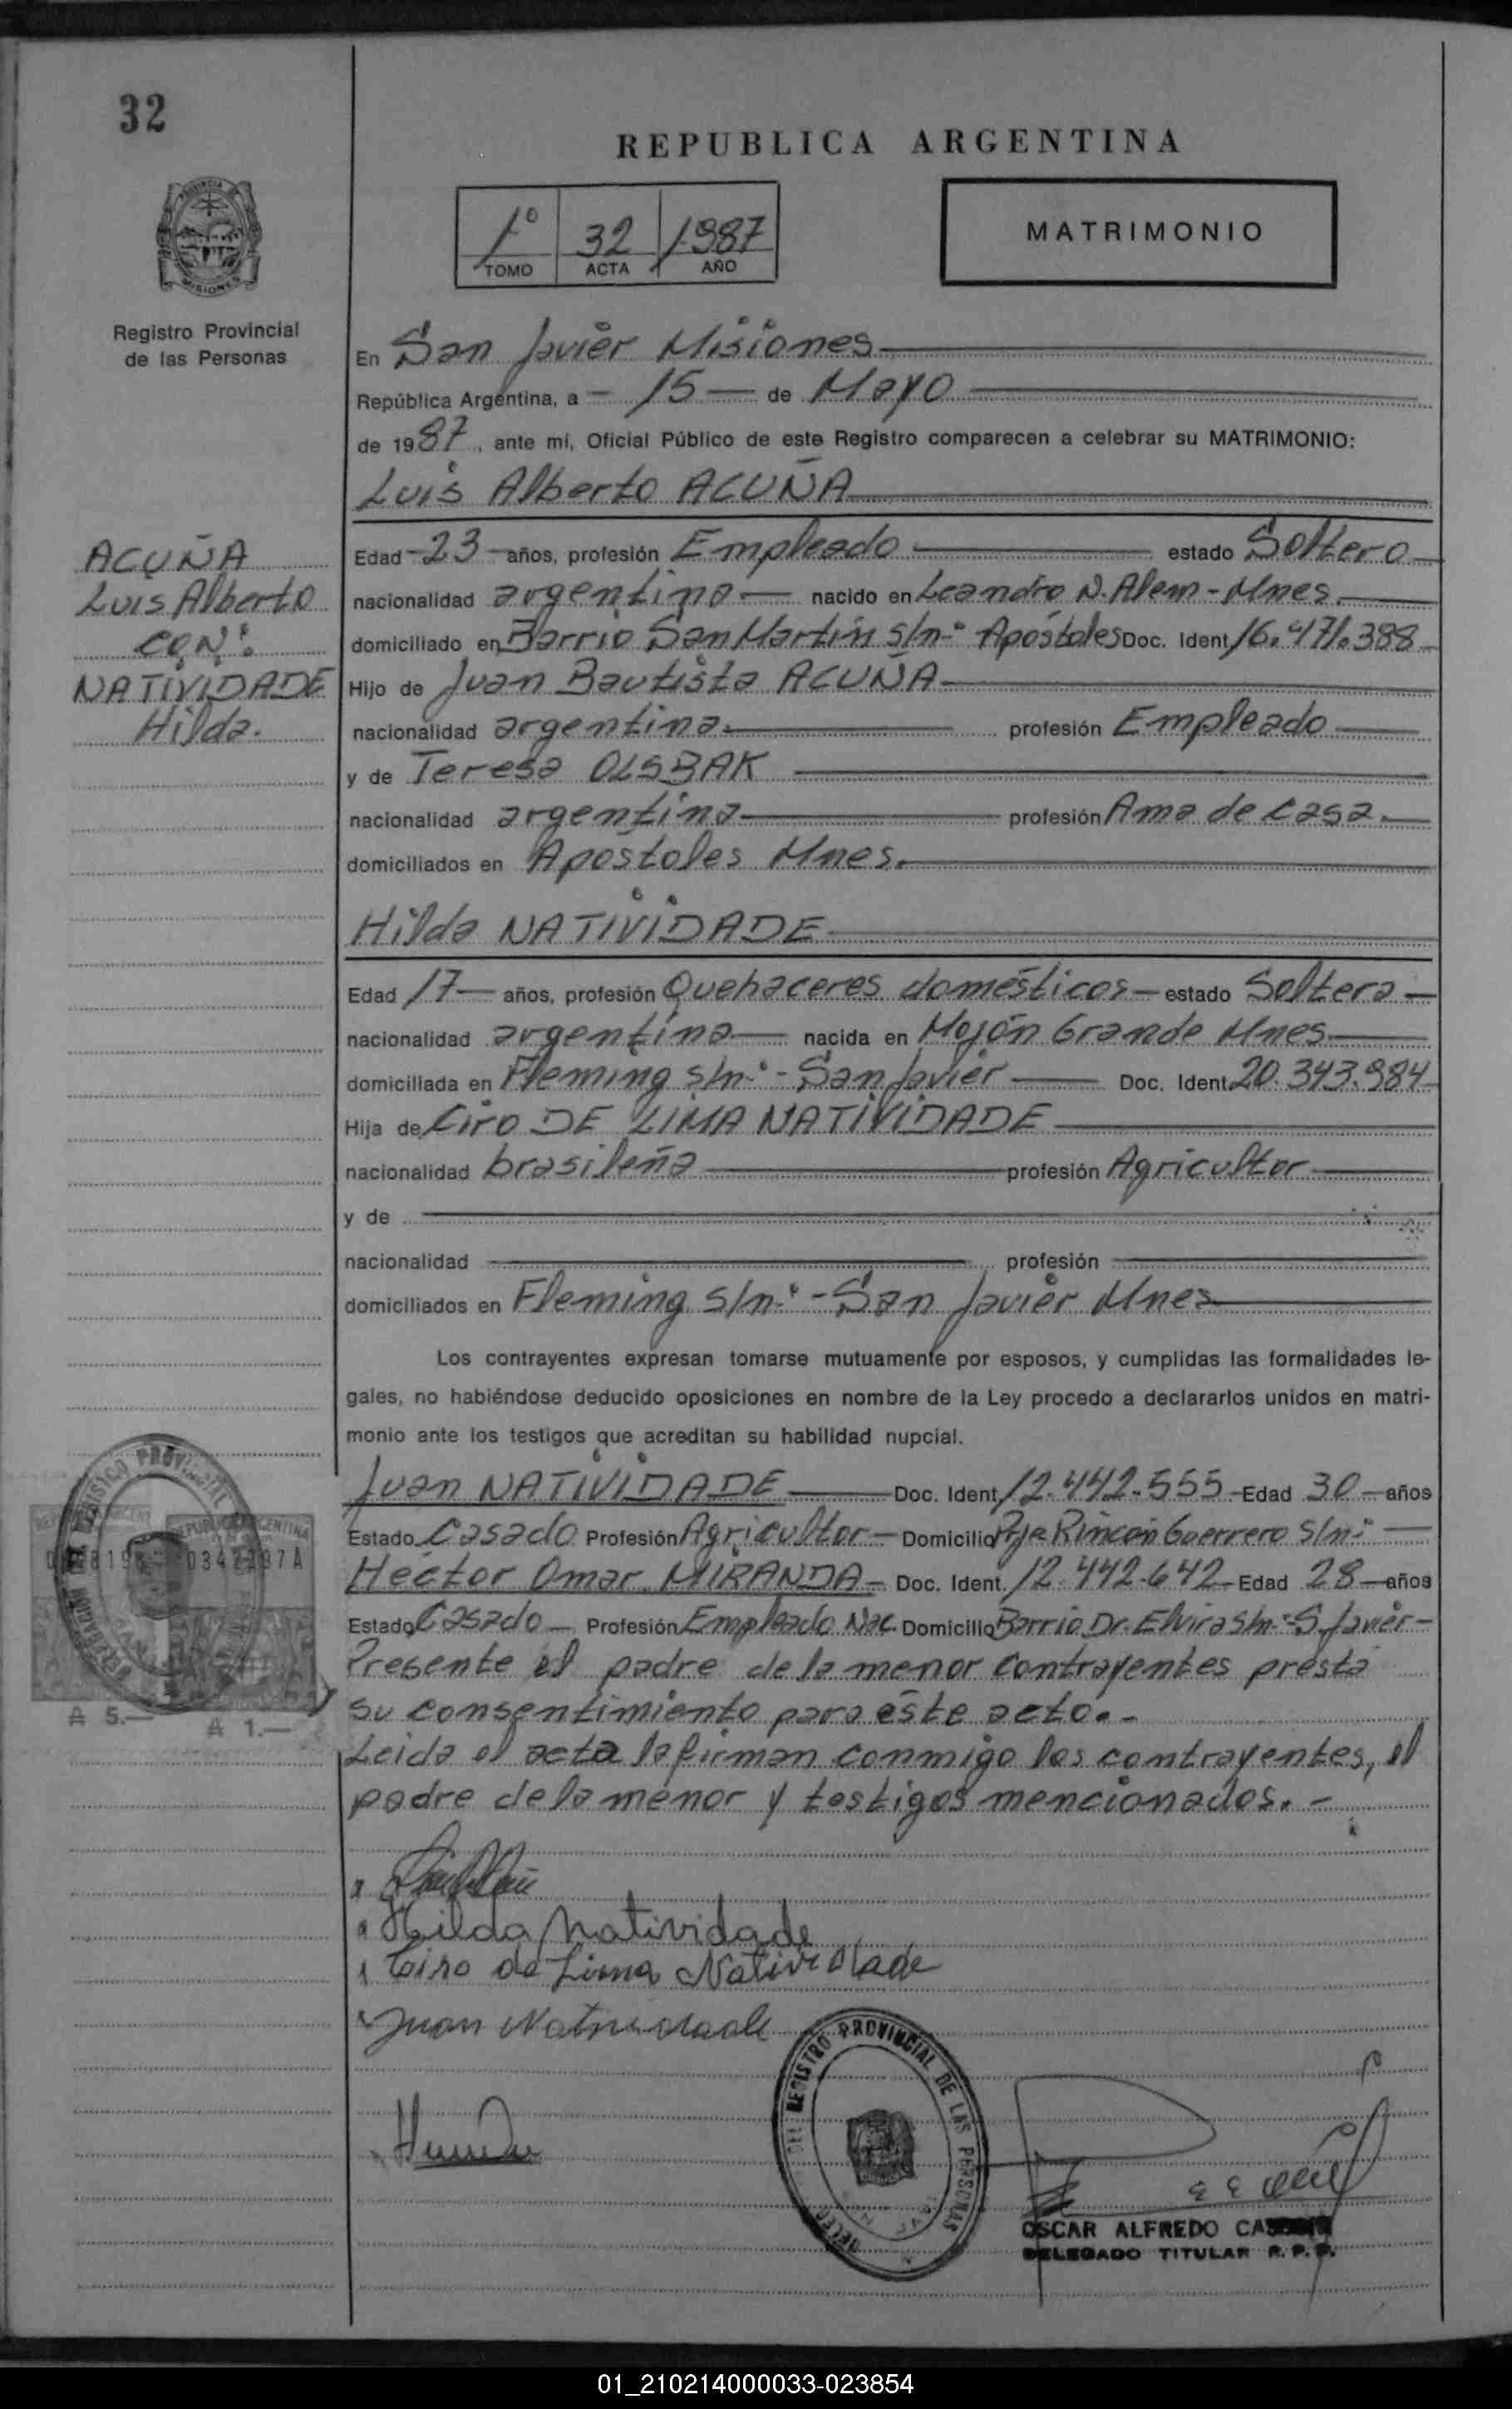 32
REPUBLICA ARGENTINA
1º 32 1987
TOMO ACTA AÑO
MATRIMONIO
PROVINCIA DE
MISIONES
Registro Provincial
de las Personas
En San Javier Misiones
República Argentina, a - 15 - de Mayo
de 1987, ante mí, Oficial Público de este Registro comparecen a celebrar su MATRIMONIO:
Luis Alberto ACUÑA
ACUÑA
Luis Alberto
CON:
NATIVIDADE
Hilda.
Edad -23- años, profesión Empleado estado Soltero
nacionalidad argentina nacido en Leandro N. Alem - Mnes.
domiciliado en Barrio San Martín s/n.º Apóstoles Doc. Ident. 16.471.388
Hijo de Juan Bautista ACUÑA
nacionalidad argentina. profesión Empleado
y de Teresa OLSBAK
nacionalidad argentina profesión Ama de casa.
domiciliados en Apostoles Mnes.
Hilda NATIVIDADE
Edad 17 años, profesión Quehaceres domésticos estado Soltera
nacionalidad argentina nacida en Mojón Grande Mnes
domiciliada en Fleming s/n.º - San Javier Doc. Ident. 20.343.984
Hija de Ciro DE LIMA NATIVIDADE
nacionalidad brasileña profesión Agricultor
y de
nacionalidad profesión
domiciliados en Fleming s/n.º - San Javier Mnes
Los contrayentes expresan tomarse mutuamente por esposos, y cumplidas las formalidades le-
gales, no habiéndose deducido oposiciones en nombre de la Ley procedo a declararlos unidos en matri-
monio ante los testigos que acreditan su habilidad nupcial.
Juan NATIVIDADE Doc. Ident. 12.442.555 Edad 30 años
Estado Casado Profesión Agricultor Domicilio Pje Rincón Guerrero s/n.º
Héctor Omar MIRANDA Doc. Ident. 12.442.642 Edad 28 años
Estado Casado Profesión Empleado Nac. Domicilio Barrio Dr. Elvira s/n.º S. Javier
Presente el padre de la menor contrayentes presta
su consentimiento para éste acto.-
Leida el acta la firman conmigo los contrayentes, el
padre de la menor y testigos mencionados.-
REGISTRO PROVINCIAL
REPUBLICA ARGENTINA
A 5.—
A 1.—
Hilda Natividade
Ciro de Lima Natividade
Juan Natividade
DEL REGISTRO PROVINCIAL DE LAS PERSONAS
OSCAR ALFREDO
DELEGADO TITULAR R.P.P.
01_210214000033-023854